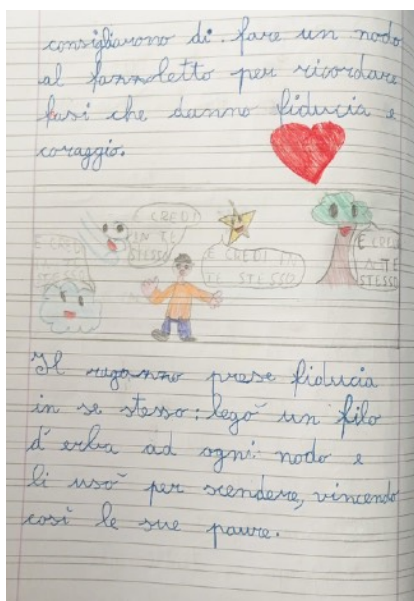 consigliarono di fare un nodo
al fazzoletto per ricordare
frasi che danno fiducia e
coraggio.
E CREDI
IN TE
STESSO
E CREDI
A TE
STESSO
E CREDI IN
TE STESSO
E CREDI
A TE
STESSO
Il ragazzo prese fiducia
in se stesso: legò un filo
d'erba ad ogni nodo e
li usò per scendere, vincendo
così le sue paure.